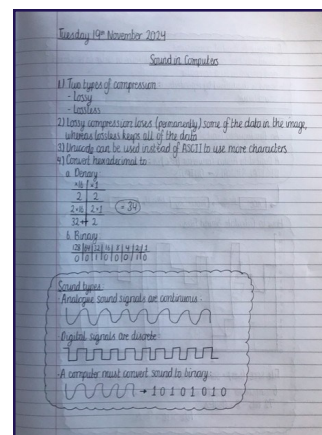 Tuesday 19th November 2024
Sound in Computers
1) Two types of compression:
- Lossy
- Lossless
2) Lossy compression loses (permanently) some of the data in the image,
whereas lossless keeps all of the data
3) Unicode can be used instead of ASCII to use more characters
4) Convert hexadecimal to:
a. Denary
×16 | ×1
2 | 2
2×16 | 2×1 = 34
32 + 2
b. Binary
128 | 64 | 32 | 16 | 8 | 4 | 2 | 1
0 | 0 | 1 | 0 | 0 | 0 | 1 | 0
Sound types
Analogue sound signals are continuous:
Digital signals are discrete:
A computer must convert sound to binary:
→ 1 0 1 0 1 0 1 0